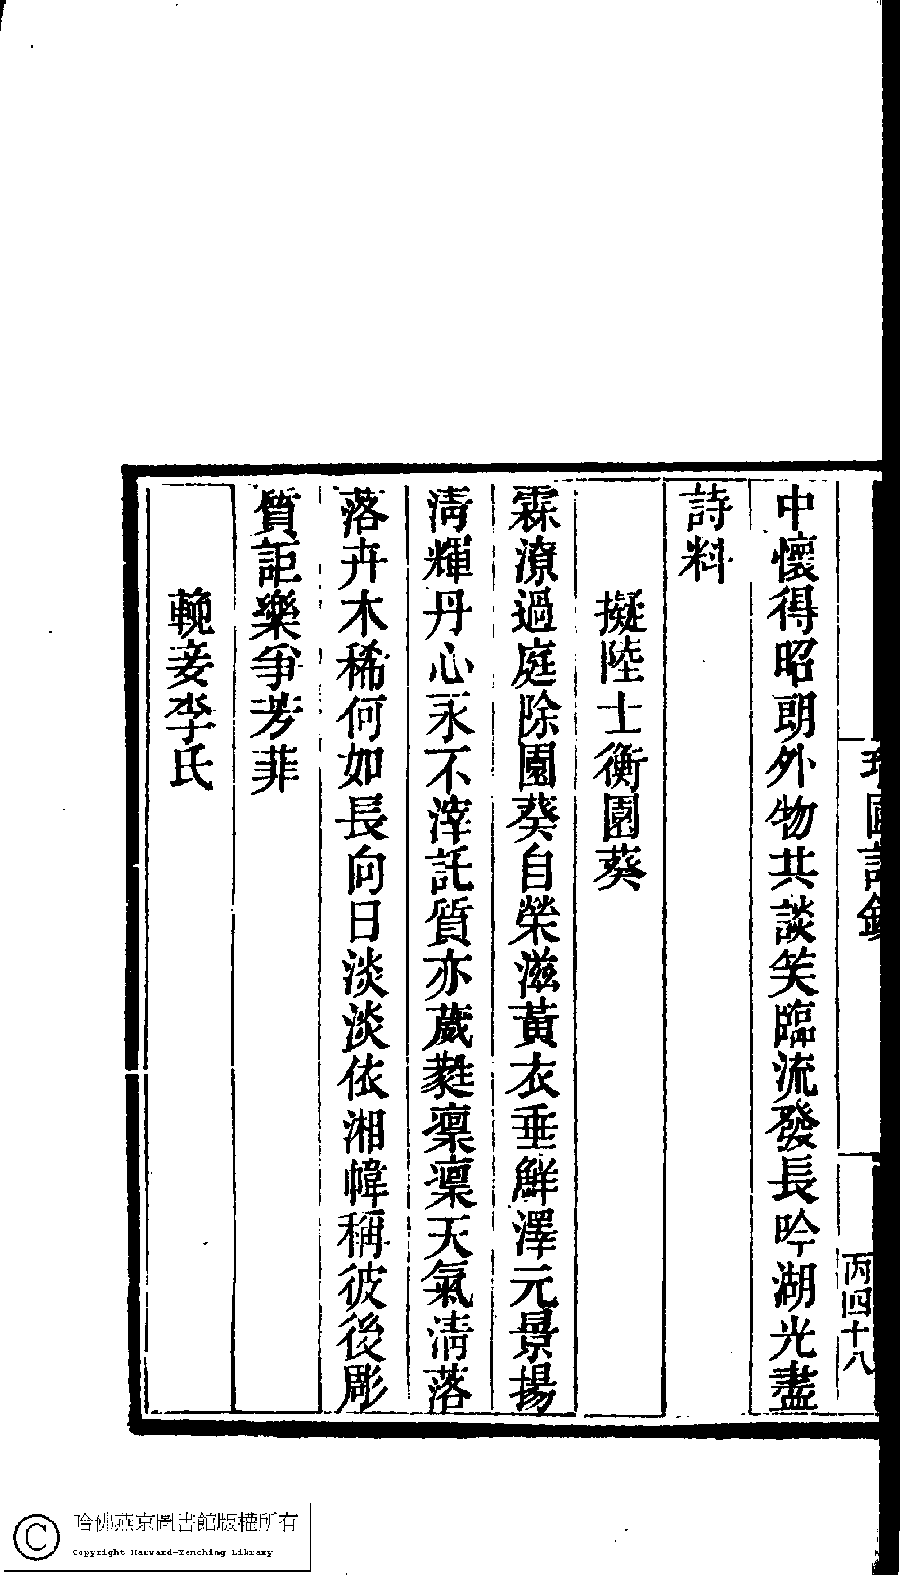 丙四十八
中懷得昭朗外物共談笑臨流發長吟湖光盡
詩料
擬陸士衡園葵
霖潦過庭除園葵自榮滋黃衣垂鮮澤元景揚
淸輝丹心永不滓託質亦葳蕤稟稟天氣淸落
落卉木稀何如長向日淡淡依湘幃稱彼後彫
質詎樂爭芳菲
輓妾李氏
哈佛燕京圖書館版權所有
Copyright Harvard-Yenching Library